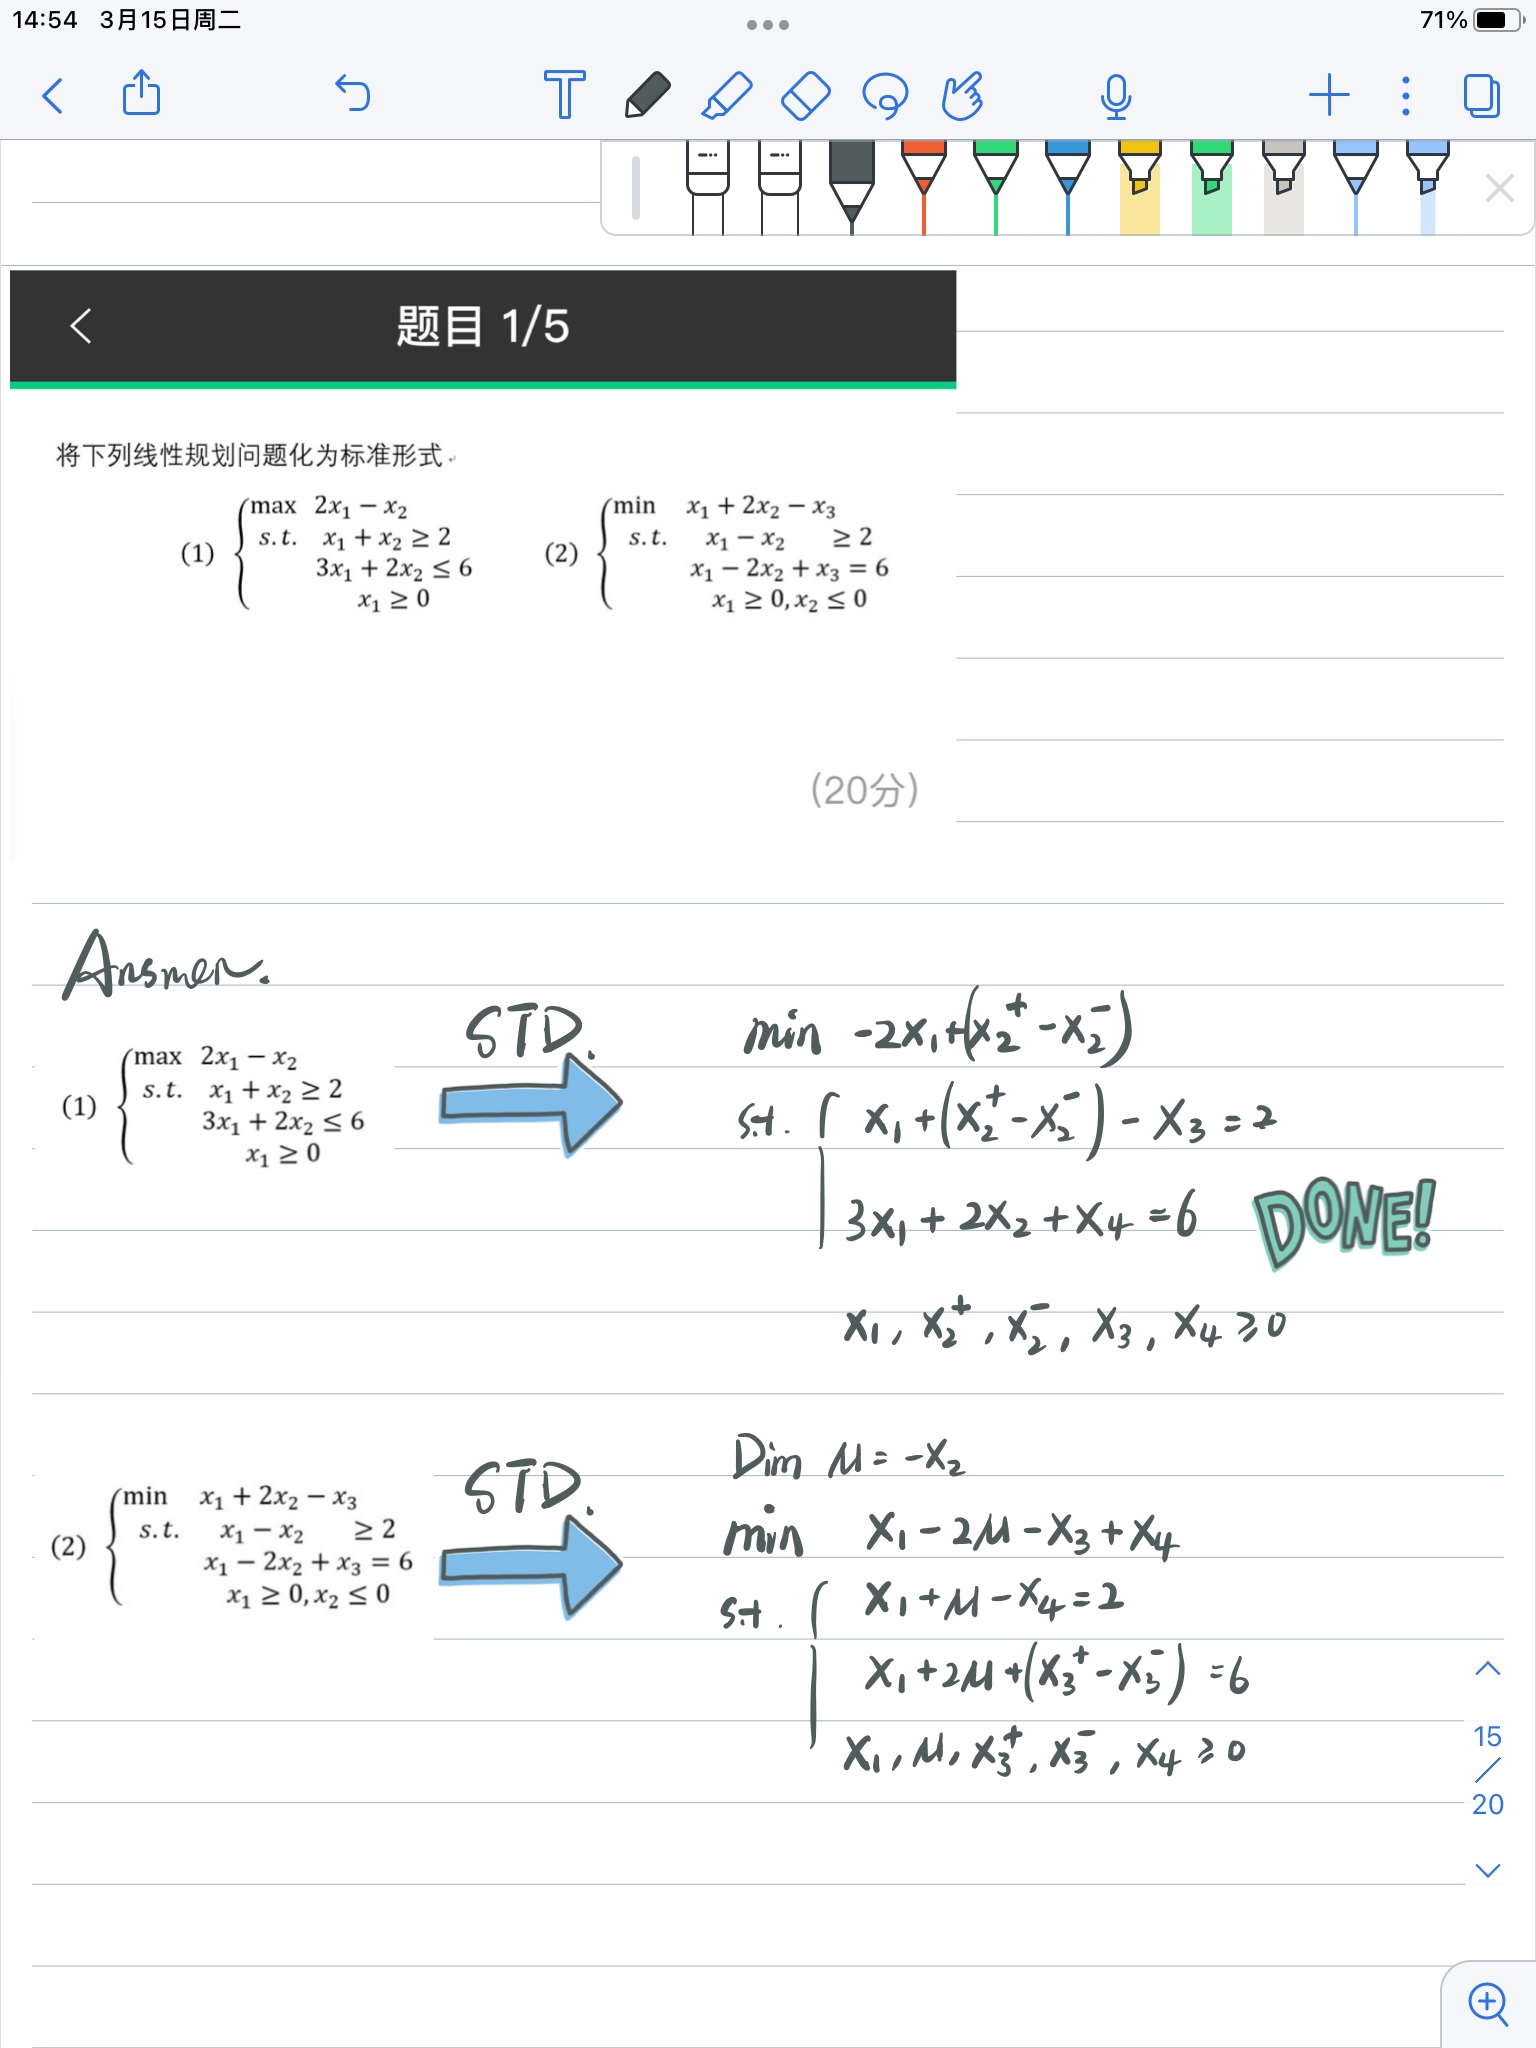 14:54 3月15日周二 71%
题目 1/5
将下列线性规划问题化为标准形式
(1) { max 2x₁ − x₂
s.t. x₁ + x₂ ≥ 2
3x₁ + 2x₂ ≤ 6
x₁ ≥ 0
(2) { min x₁ + 2x₂ − x₃
s.t. x₁ − x₂ ≥ 2
x₁ − 2x₂ + x₃ = 6
x₁ ≥ 0, x₂ ≤ 0
(20分)
Answer.
(1) { max 2x₁ − x₂
s.t. x₁ + x₂ ≥ 2
3x₁ + 2x₂ ≤ 6
x₁ ≥ 0
STD.
min -2x₁+(x₂⁺-x₂⁻)
s.t. { x₁+(x₂⁺-x₂⁻)-x₃=2
3x₁+2x₂+x₄=6
DONE!
x₁, x₂⁺, x₂⁻, x₃, x₄ ≥0
(2) { min x₁ + 2x₂ − x₃
s.t. x₁ − x₂ ≥ 2
x₁ − 2x₂ + x₃ = 6
x₁ ≥ 0, x₂ ≤ 0
STD.
Dim μ=-x₂
min x₁-2μ-x₃+x₄
s.t. { x₁+μ-x₄=2
x₁+2μ+(x₃⁺-x₃⁻)=6
x₁, μ, x₃⁺, x₃⁻, x₄ ≥0
15
/
20